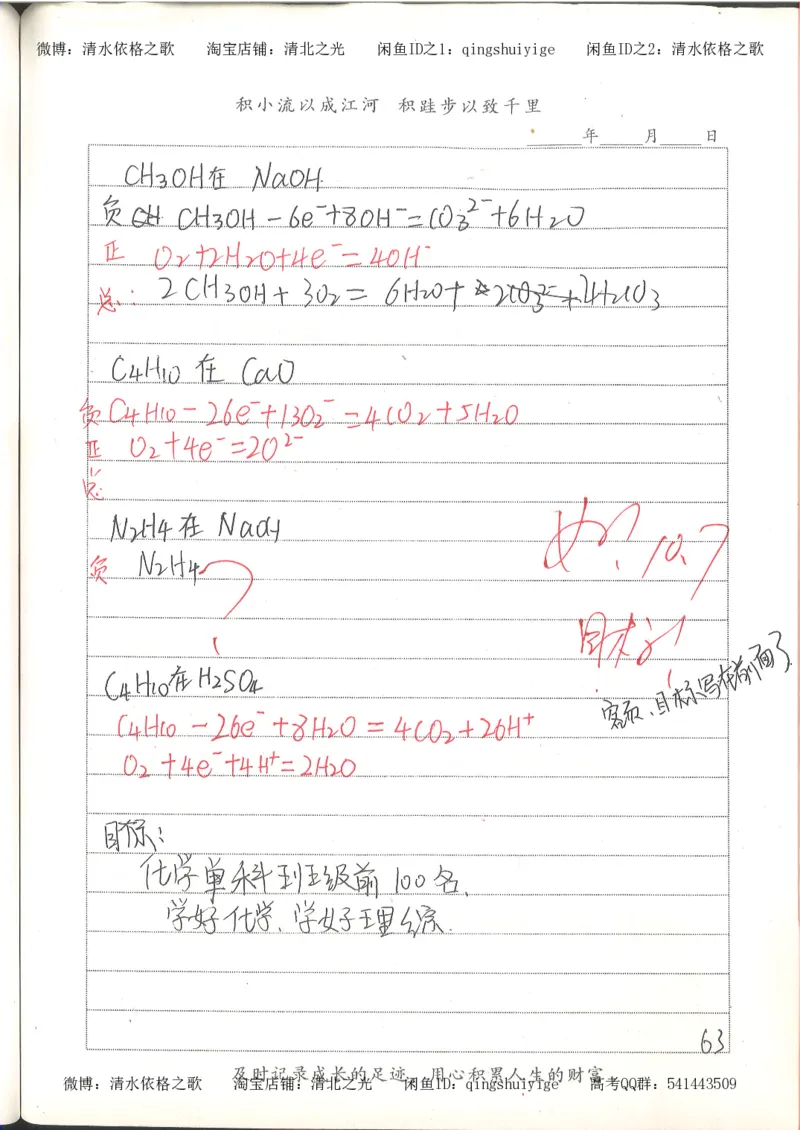 微博：清水依格之歌 淘宝店铺：清北之光 闲鱼ID之1：qingshuiyige 闲鱼ID之2：清水依格之歌
积小流以成江河 积跬步以致千里
年 月 日
CH3OH在 NaOH
负 CH3OH-6e⁻+8OH⁻=CO3²⁻+6H2O
正 O2+2H2O+4e⁻=4OH⁻
总： 2CH3OH+3O2= 6H2O+
C4H10 在 CaO
负 C4H10-26e⁻+13O2⁻=4CO2+5H2O
正 O2+4e⁻=2O²⁻
总
N2H4在 NaOH
负 N2H4
10.7
目标
客页、目标写在前面了
C4H10在H2SO4
C4H10-26e⁻+8H2O=4CO2+26H⁺
O2+4e⁻+4H⁺=2H2O
目标：
化学单科到班级前100名.
学好化学、学好理综.
63
及时记录成长的足迹 用心积累人生的财富
微博：清水依格之歌 淘宝店铺：清北之光 闲鱼ID：qingshuiyige 高考QQ群：541443509